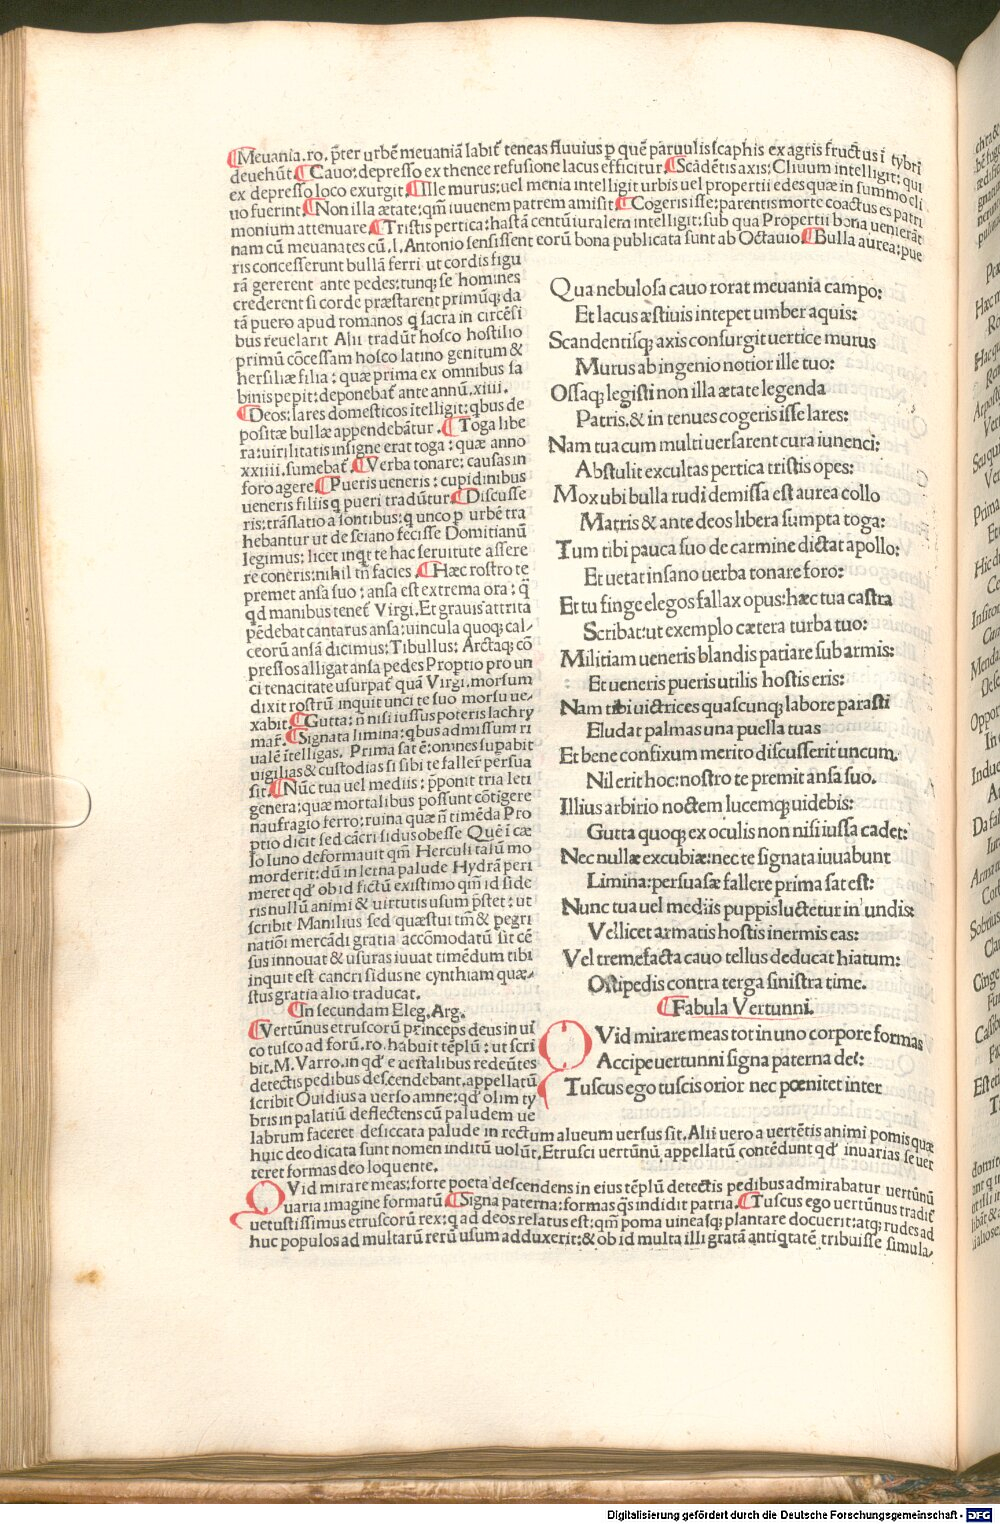 ¶Meuania.ro. p̄ter urbē meuaniā labit̄ teneas fluuius p quē paruulis scaphis ex agris fructus ī tybrī
deuehūt. ¶Cauo: depresso ex thenee refusione lacus efficitur. ¶Scādētis axis: Cliuum intelligit: qui
ex depresso loco exurgit. ¶Ille murus: uel menia intelligit urbis uel propertii edes quæ in summo cli
uo fuerint. ¶Non illa ætate: qm̄ iuuenem patrem amisit. ¶Cogeris isse: parentis morte coactus es patri
monium attenuare. ¶Tristis pertica: hastā centū iuralem intelligit: sub qua Propertii bona uenierāt
nam cū meuanates cū .l. Antonio sensissent eorū bona publicata sunt ab Octauio. ¶Bulla aurea: pue
ris concesserunt bullā ferri ut cordis figu
rā gererent ante pedes: tunq; se homines
crederent si corde præstarent primūq; da
tā puero apud romanos q sacra in circēsi
bus reuelarit Alii tradūt hosco hostilio
primū cōcessam hosco latino genitum &
hersiliæ filia: quæ prima ex omnibus sa
binis pepit: deponebat̄ ante annū .xiiii.
¶Deos: lares domesticos ītelligit: qbus de
positæ bullæ appendebātur. ¶Toga libe
ra: uirilitatis insigne erat toga: quæ anno
xxiiii. sumebat̄. ¶Verba tonare: causas in
foro agere. ¶Pueris ueneris: cupidinibus
ueneris filiis q pueri tradūtur. ¶Discusse
ris: trāslatio a sontibus: q unco p urbē tra
hebantur ut de seiano fecisse Domitianū
legimus: licet inqt te hac seruitute assere
re coneris: nihil tn̄ facies. ¶Hæc rostro te
premet ansa suo: ansa est extrema ora: q̄
qd manibus tenet̄ Virgi. Et grauis attrita
pēdebat cantarus ansa: uincula quoq; cal-
ceorū ansā dicimus: Tibullus: Arctaq; cō
pressos alligat ansa pedes Proptio pro un
ci tenacitate usurpat̄ quā Virgi. morsum
dixit rostrū inquit unci te suo morsu ue-
xabit. ¶Gutta: n̄ nisi iussus poteris lachry
mar̄. ¶Signata limina: qbus admissum ri
ualē ītelligas. Prima sat ē: omnes supabit
uigilias & custodias si sibi te fallen̄ persua
sit. ¶Nūc tua uel mediis: p̄ponit tria leti
genera: quæ mortalibus possunt cōtīgere
naufragio ferro: ruina quæ n̄ timēda Pro
ptio dicit sed cācri sidus obesse Quē ī cæ
lo Iuno deformauit qm̄ Herculi talū mo
morderit: dū in lerna palude Hydrā peri
meret qd̄ ob id fictū existimo qm̄ id side
ris nullū animi & uirtutis usum p̄stet: ut
scribit Manilius sed quæstui tm̄ & pegri
natiōi mercādi gratia accōmodatū sit cē
sus innouat & usuras iuuat timēdum tibi
inquit est cancri sidus ne cynthiam quæ-
stus gratia alio traducat.
Qua nebulosa cauo rorat meuania campo:
Et lacus æstiuis intepet umber aquis:
Scandentisq; axis consurgit uertice murus
Murus ab ingenio notior ille tuo:
Ossaq; legisti non illa ætate legenda
Patris. & in tenues cogeris isse lares:
Nam tua cum multi uersarent cura iunenci:
Abstulit excultas pertica tristis opes:
Mox ubi bulla rudi demissa est aurea collo
Matris & ante deos libera sumpta toga:
Tum tibi pauca suo de carmine dictat apollo:
Et uetat insano uerba tonare foro:
Et tu finge elegos fallax opus: hæc tua castra
Scribat: ut exemplo cætera turba tuo:
Militiam ueneris blandis patiare sub armis:
Et ueneris pueris utilis hostis eris:
Nam tibi uictrices quascunq; labore parasti
Eludat palmas una puella tuas
Et bene confixum merito discusserit uncum.
Nil erit hoc: nostro te premit ansa suo.
Illius arbirio noctem lucemq; uidebis:
Gutta quoq; ex oculis non nisi iussa cadet:
Nec nullæ excubiæ: nec te signata iuuabunt
Limina: persuasæ fallere prima sat est:
Nunc tua uel mediis puppis luctetur in undis:
Vellicet armatis hostis inermis eas:
Vel tremefacta cauo tellus deducat hiatum:
Octipedis contra terga sinistra time.
¶In secundam Eleg. Arg.
¶Vertūnus etruscorū princeps deus in ui
co tusco ad forū. ro. habuit tēplū: ut scri
bit. M. Varro. in qd̄ e uestalibus redeūtes
detectis pedibus descendebant. appellatū
scribit Ouidius a uerso amne: qd̄ olim ty
bris in palatiū deflectens cū paludem ue
labrum faceret desiccata palude in rectum alueum uersus sit. Alii uero a uertētis animi pomis quæ
huic deo dicata sunt nomen inditū uolūt. Etrusci uertūnū appellatū contēdunt qd̄ in uarias se uer
teret formas deo loquente.
¶Fabula Vertunni.
QVid mirare meas tot in uno corpore formas
Accipe uertunni signa paterna dei:
Tuscus ego tuscis orior nec pœnitet inter
QVid mirare meas: forte poeta descendens in eius tēplū detectis pedibus admirabatur uertūnū
uaria imagine formatū. ¶Signa paterna: formas q̄s indidit patria. ¶Tuscus ego uertūnus tradit̄
uetustissimus etruscorū rex: q ad deos relatus est: qm̄ poma uineasq; plantare docuerit: atq; rudes ad
huc populos ad multarū rerū usum adduxerit: & ob id multa illi gratā antiqtatē tribuisse simula-
Digitalisierung gefördert durch die Deutsche Forschungsgemeinschaft - DFG